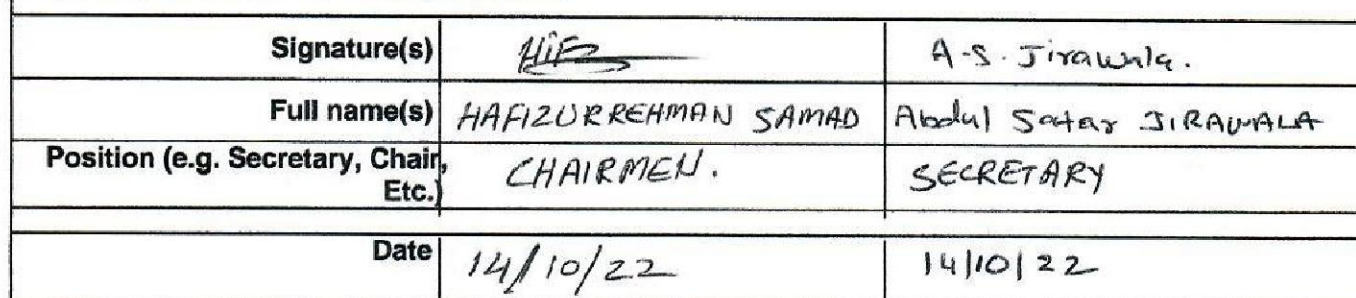 Signature(s) A-S. Jirawala.
Full name(s) HAFIZURREHMAN SAMAD Abdul Satar JIRAWALA
Position (e.g. Secretary, Chair, CHAIRMEN. SECRETARY
Etc.)
Date 14/10/22 14/10/22